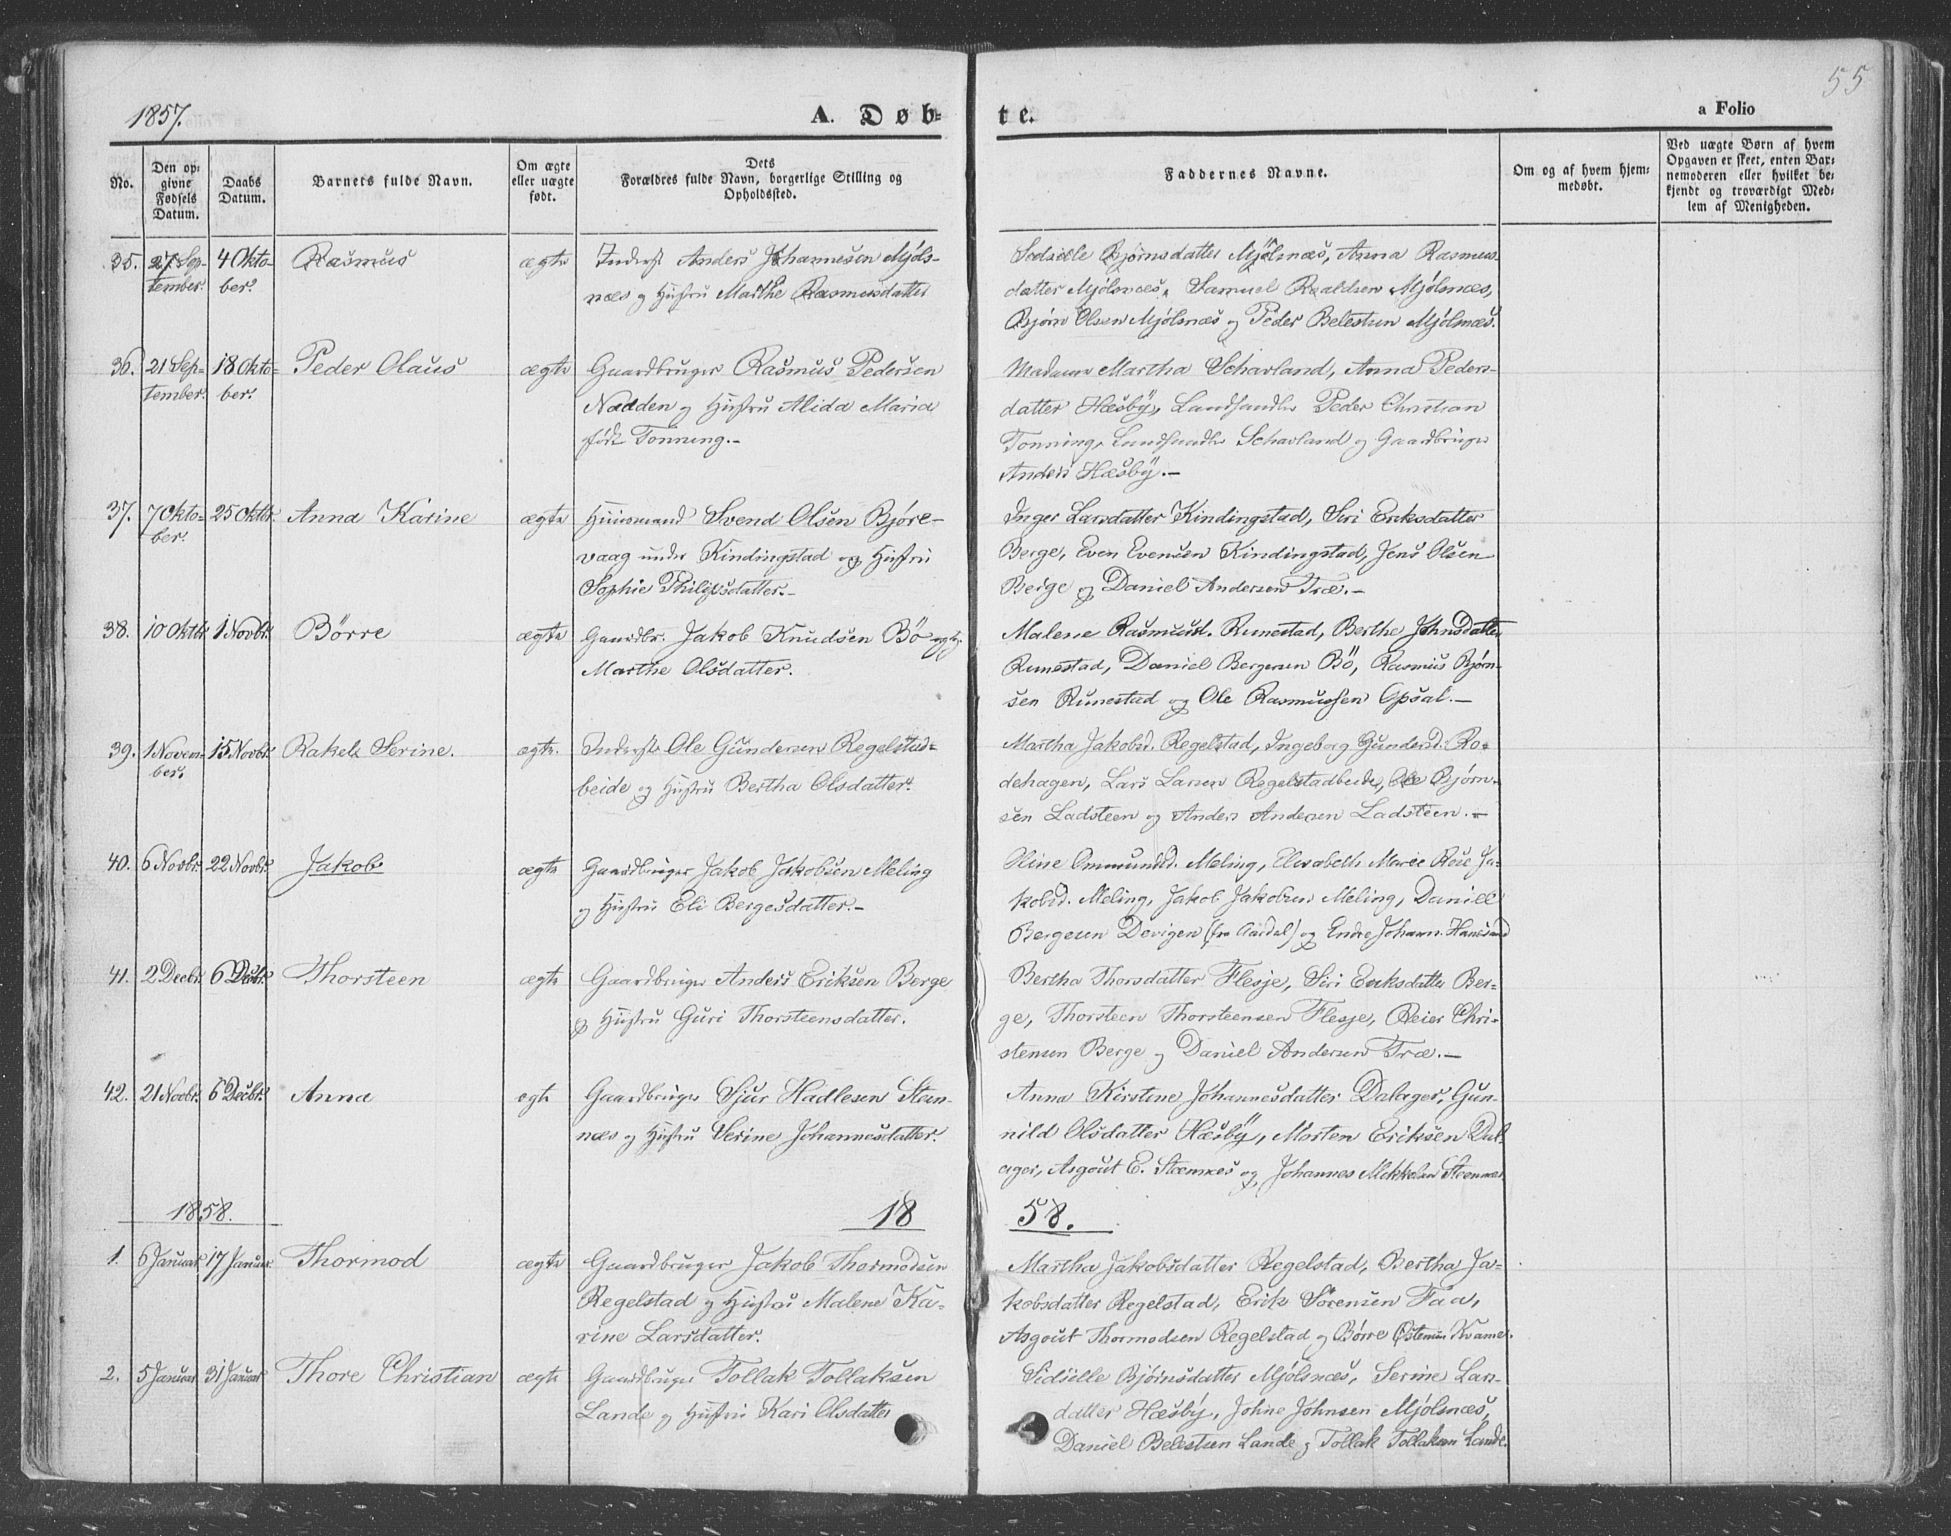 55
1857. A. Døb= te. a Folio
No.
Den op=
givne
Fødsels
Datum.
Daabs
Datum.
Barnets fulde Navn.
Om ægte
eller uægte
født.
Dets
Forældres fulde Navn, borgerlige Stilling og
Opholdssted.
Faddernes Navne.
Om og af hvem hjem=
medøbt.
Ved uægte Børn af hvem
Opgaven er skeet, enten Bar=
nemoderen eller hvilket be=
kjendt og troværdigt Med=
lem af Menigheden.
35. 27 Sep- 4 Okto- Rasmus ægte Inderst Anders Johannesen Mjøls-
tember. ber. næs og Hustru Marthe Rasmusdatter
Bjørnsdatter Mjølsnæs, Anna Rasmus
datter Mjølsnæs, Samuel Roaldsen Mjølsnæs,
Bjørn Olsen Mjølsnæs og Peder Belestsen Mjølsnæs.
36. 21 Sep- 18 Okto- Peder Olaus ægte Gaardbruger Rasmus Pedersen
tember. ber. Nadden og Hustru Alida Maria
født Tonning.-
Madame Martha Schavland, Anna Peders-
datter Hæsbÿ, Landhandler Peder Christian
Tonning, Landhandler Schavland og Gaardbruger
Anders Hæsbÿ.-
37. 7 Okto- 25 Oktbr. Anna Karine ægte Huusmand Svend Olsen Bjøre-
ber. vaag under Kindingstad og Hustru
Sophie Philipsdatter.-
Inger Larsdatter Kindingstad, Siri Eriksdatter
Berge, Even Evensen Kindingstad, Jens Olsen
Berge og Daniel Andersen Træ.-
38. 10 Oktbr. 1 Novbr. Börre ægte Gaardbr. Jakob Knudsen Bö og
Marthe Olsdatter.
Malene Rasmusd. Runestad, Berthe Johnsdatter
Runestad, Daniel Bergersen Bö, Rasmus Bjørn-
sen Runestad og Ole Rasmussen Opsal.-
39. 1 Novem- 15 Novbr. Rakel Serine. ægte. Inderst Ole Gundersen Regelstad-
ber. beide og Hustru Bertha Olsdatter.
Martha Jakobsd. Regelstad, Ingeborg Gundersd. Ro-
dehagen, Lars Larsen Regelstadbeide, Ole Bjørn-
sen Ladsteen og Anders Andersen Ladsteen.-
40. 6 Novbr. 22 Novbr. Jakob ægte Gaardbruger Jakob Jakobsen Meling
og Hustru Eli Bergesdatter.-
Oline Ommundsd. Meling, Elisabeth Marie Rose Ja-
kobsd. Meling, Jakob Jakobsen Meling, Daniel
Bergesen Devigen (fra Aardal) og Endre Johann. Hanesand
41. 2 Decbr. 6 Decbr. Thorsteen ægte Gaardbruger Anders Eriksen Berge
og Hustru Guri Thorsteensdatter.
Bertha Thorsdatter Flesje, Siri Eriksdatter Ber-
ge, Thorsteen Thorsteensen Flesje, Reier Chri-
stensen Berge og Daniel Andersen Træ.-
42. 21 Novbr. 6 Decbr. Anna ægte Gaardbruger Sjur Hadlesen Stan-
næs og Hustru Serine Johannesdatter.
Anna Kirstine Johannesdatter Dalager, Gun-
nild Olsdatter Hæsbÿ, Morten Eriksen Dal-
ager, Asgout E. Steennæs og Johannes Mikkelsen Steennæs
1858. 18 58.
1. 6 Januar. 17 Januar. Thormod ægte Gaardbruger Jakob Thormodsen
Regelstad og Hustru Malene Ka-
rine Larsdatter.
Martha Jakobsdatter Regelstad, Bertha Ja-
kobsdatter Regelstad, Erik Sörensen Faa,
Asgout Thormodsen Regelstad og Børre Østensen Kvame.
2. 5 Januar 31 Januar. Thore Christian ægte Gaardbruger Tollak Tollaksen
Lande og Hustru Kari Olsdatter
Bjørnsdatter Mjølsnæs, Serine Lars-
datter Hæsby, Johne Johnsen Mjølsnæs,
Daniel Belestsen Lande og Tollak Tollaksen Lande.